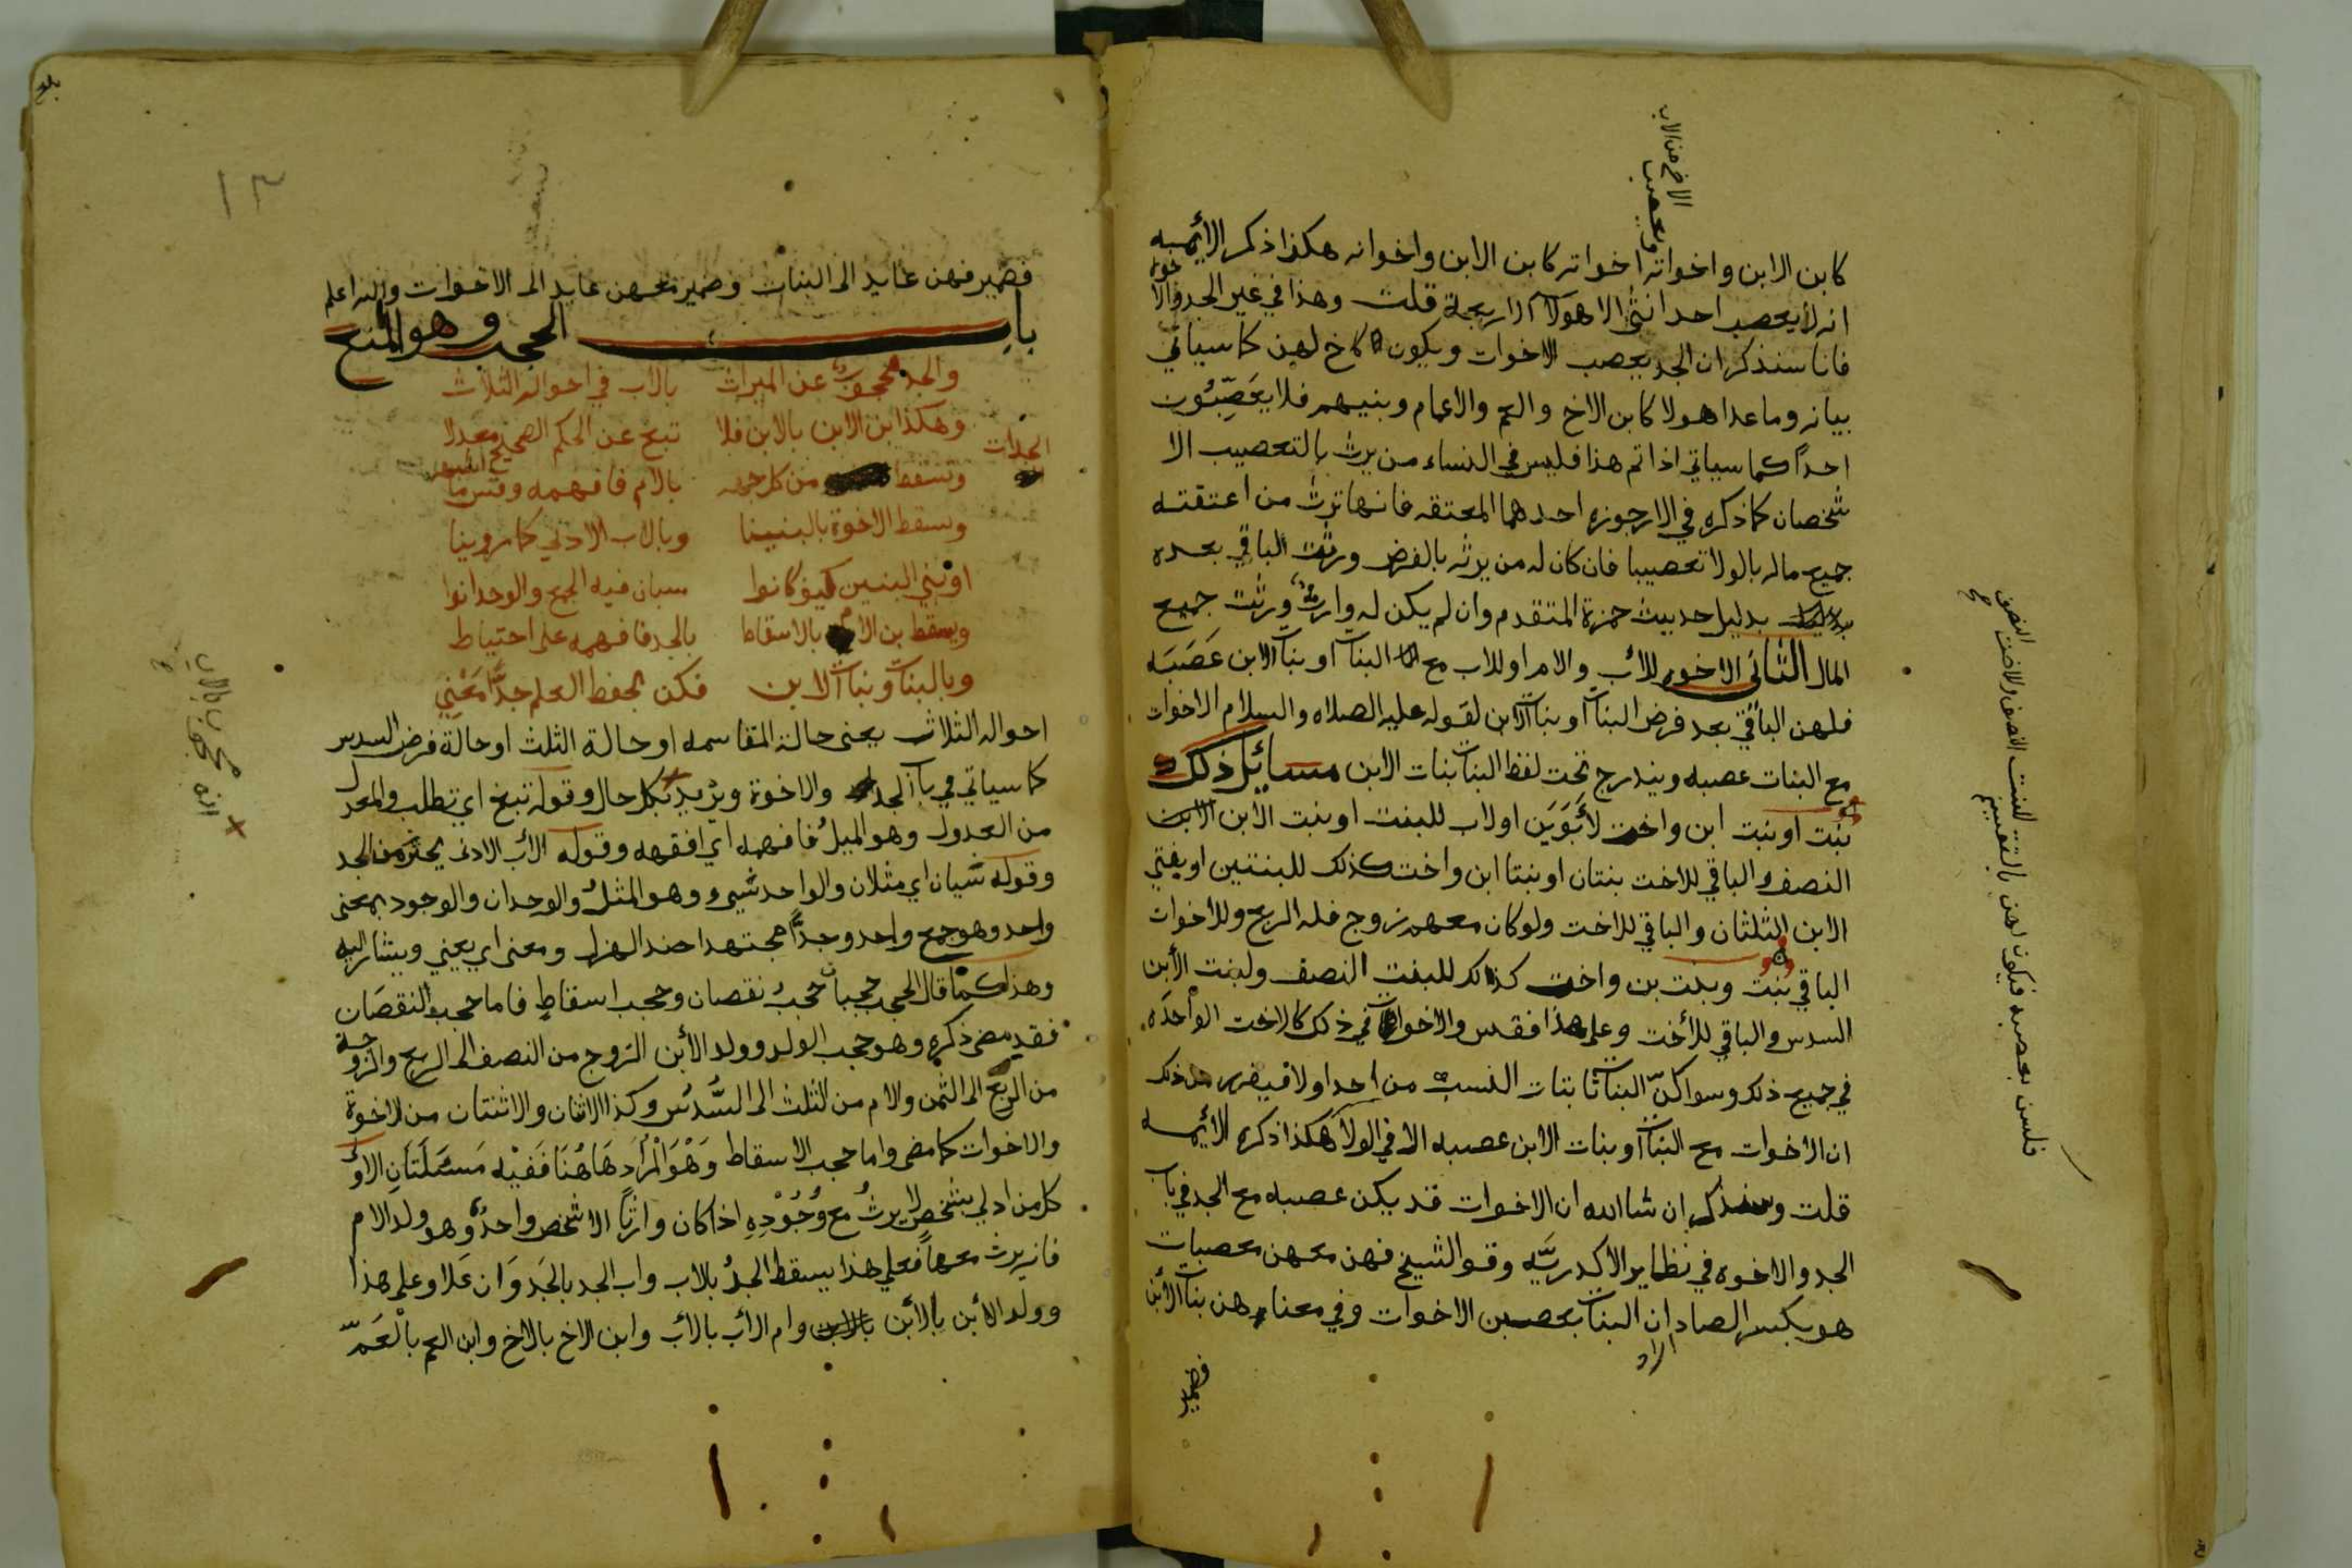 كابن الابن واخواته اخواته كابن الابن واخوانه هكذا ذكر الأيمه
انه لا يعصب احد انثى الا هولآ الاربعة قلت وهذا في غير الجد والاخوة
فانا سنذكر ان الجد يعصب الاخوات ويكون كاخ لهن كما سياتي
بيانه وما عدا هولا كابن الاخ والعم والاعمام وبنيهم فلا يعَصِّبُون
احداً كما سياتي اذا تم هذا فليس في النساء من يرث بالتعصيب الا
شخصان كما ذكره في الارجوزه احدهما المعتقه فانها ترث من اعتقته
جميع ماله بالولا تعصيبا فان كان له من يرثه بالفرض ورثت الباقي بعده
بدليل حديث حمزة المتقدم وان لم يكن له وارث ورثت جميع
المال الثاني الاخوات للأب والام او للاب مع البنات او بنات الابن عَصَبَه
فلهن الباقي بعد فرض البنات او بنات الابن لقوله عليه الصلاه والسلام الاخوات
مع البنات عصبه ويندرج تحت لفظ البنات بنات الابن مسائيل ذلك
بنت او بنت ابن واخت لأبَوَيَن اولاب للبنت او بنت الابن
النصف والباقي للاخت بنتان او بنتا ابن واخت كذلك للبنتين او بنتي
الابن الثلثان والباقي للاخت ولو كان معهم زوج فله الربع وللاخوات
الباقي بنت وبنت بن واخت كذلك للبنت النصف ولبنت الأبن
السدس والباقي للأخت وعلى هذا فقس والاخوات في ذلك كالاخت الواحده
في جميع ذلك وسوا كنّ البنات
ان الاخوات مع البنات او بنات الابن عصبه الا في الولا هكذا ذكره الأيمه
قلت وسنذكر ان شا الله ان الاخوات قد يكن عصبه مع الجد في باب
الجد والاخوه في نظاير الاكدريَّه وقول الشيخ فهن معهن معصبات
هو بكسر الصاد ان البنات يعصبن الاخوات وفي معناهن بنات الأبن
اراد
فضمير
وتعصيب
الاخ من الاب
فلسن بعصبه فيكون لهن بالتقسيم للبنت النصف وللاخت النصف
فضمير فهن عايد الى البنات وضمير معهن عايد الى الاخوات والله اعلم
باب الحجب وهو المنع
والجد محجوب عن الميراث بالاب في احواله الثلاث
وهكذا ابن الابن بالابن فلا تبغ عن الحكم الصحيح معدلا
وتسقط الجدات من كل جهه بالام فافهمه وقس ما اشبهه
وتسقط الاخوة بالبنينا وبالاب الادنى كما روينا
او ببني البنين كيف كانوا سيان فيه الجمع والوحدانوا
ويسقط بن الام بالاسقاط بالجد فافهمه على احتياط
وبالبنات وبنات الابن فكن لحفظ العلم جدًّا مَعْنِي
احواله الثلاث يعنى حالة المقاسمه او حالة الثلث او حالة فرض السدس
كما سياتي في باب الجد والاخوة ويريد بكل حال وقوله تبغ اي تطلب والمعدل
من العدول وهو الميلُ فافهمه اي افقهه وقوله الأب الادنى يحترز من الجد
وقوله سيان اي مثلان والواحد سيء وهو المثلُ والوحدان والوجود بمعنى
واحد وهو جمع واحد وجدًّا مجتهدا ضد الهزل ومعنى اي يعيني ويشار اليه
وهذا كما قال الحجب حجبان حجبُ نقصان وحجب اسقاطٍ فاما حجب النقصَان
فقد مضى ذكره وهو حجب الولد وولد الأبن الزوج من النصف الى الربع والزوجة
من الربع الى الثمن والام من الثلث الى السُّدسُ وكذا الاثنان والاثنتان من الاخوة
والاخوات كما مضى واما حجب الاسقاط وَهْوَ المُرَاد هَاهُنَا فَفيْه مَسئَلَتَانِ الاوْلى
كل من ادلي بشخصٍ لا يرثُ مع وُجُوْدِهِ اذا كان وارثًا الا شخص واحدٌ وهو ولد الام
فانه يرث معها فعلي هذا يسقط الجدُ بالاب واب الجد بالجَد وَان عَلا وعلى هذا
وولد الأبن بالأبن وام الأب بالأب وابن الاخ بالاخ وابن العم بالْعَمّ
انه محجوب بالاب
١٣
بلغ